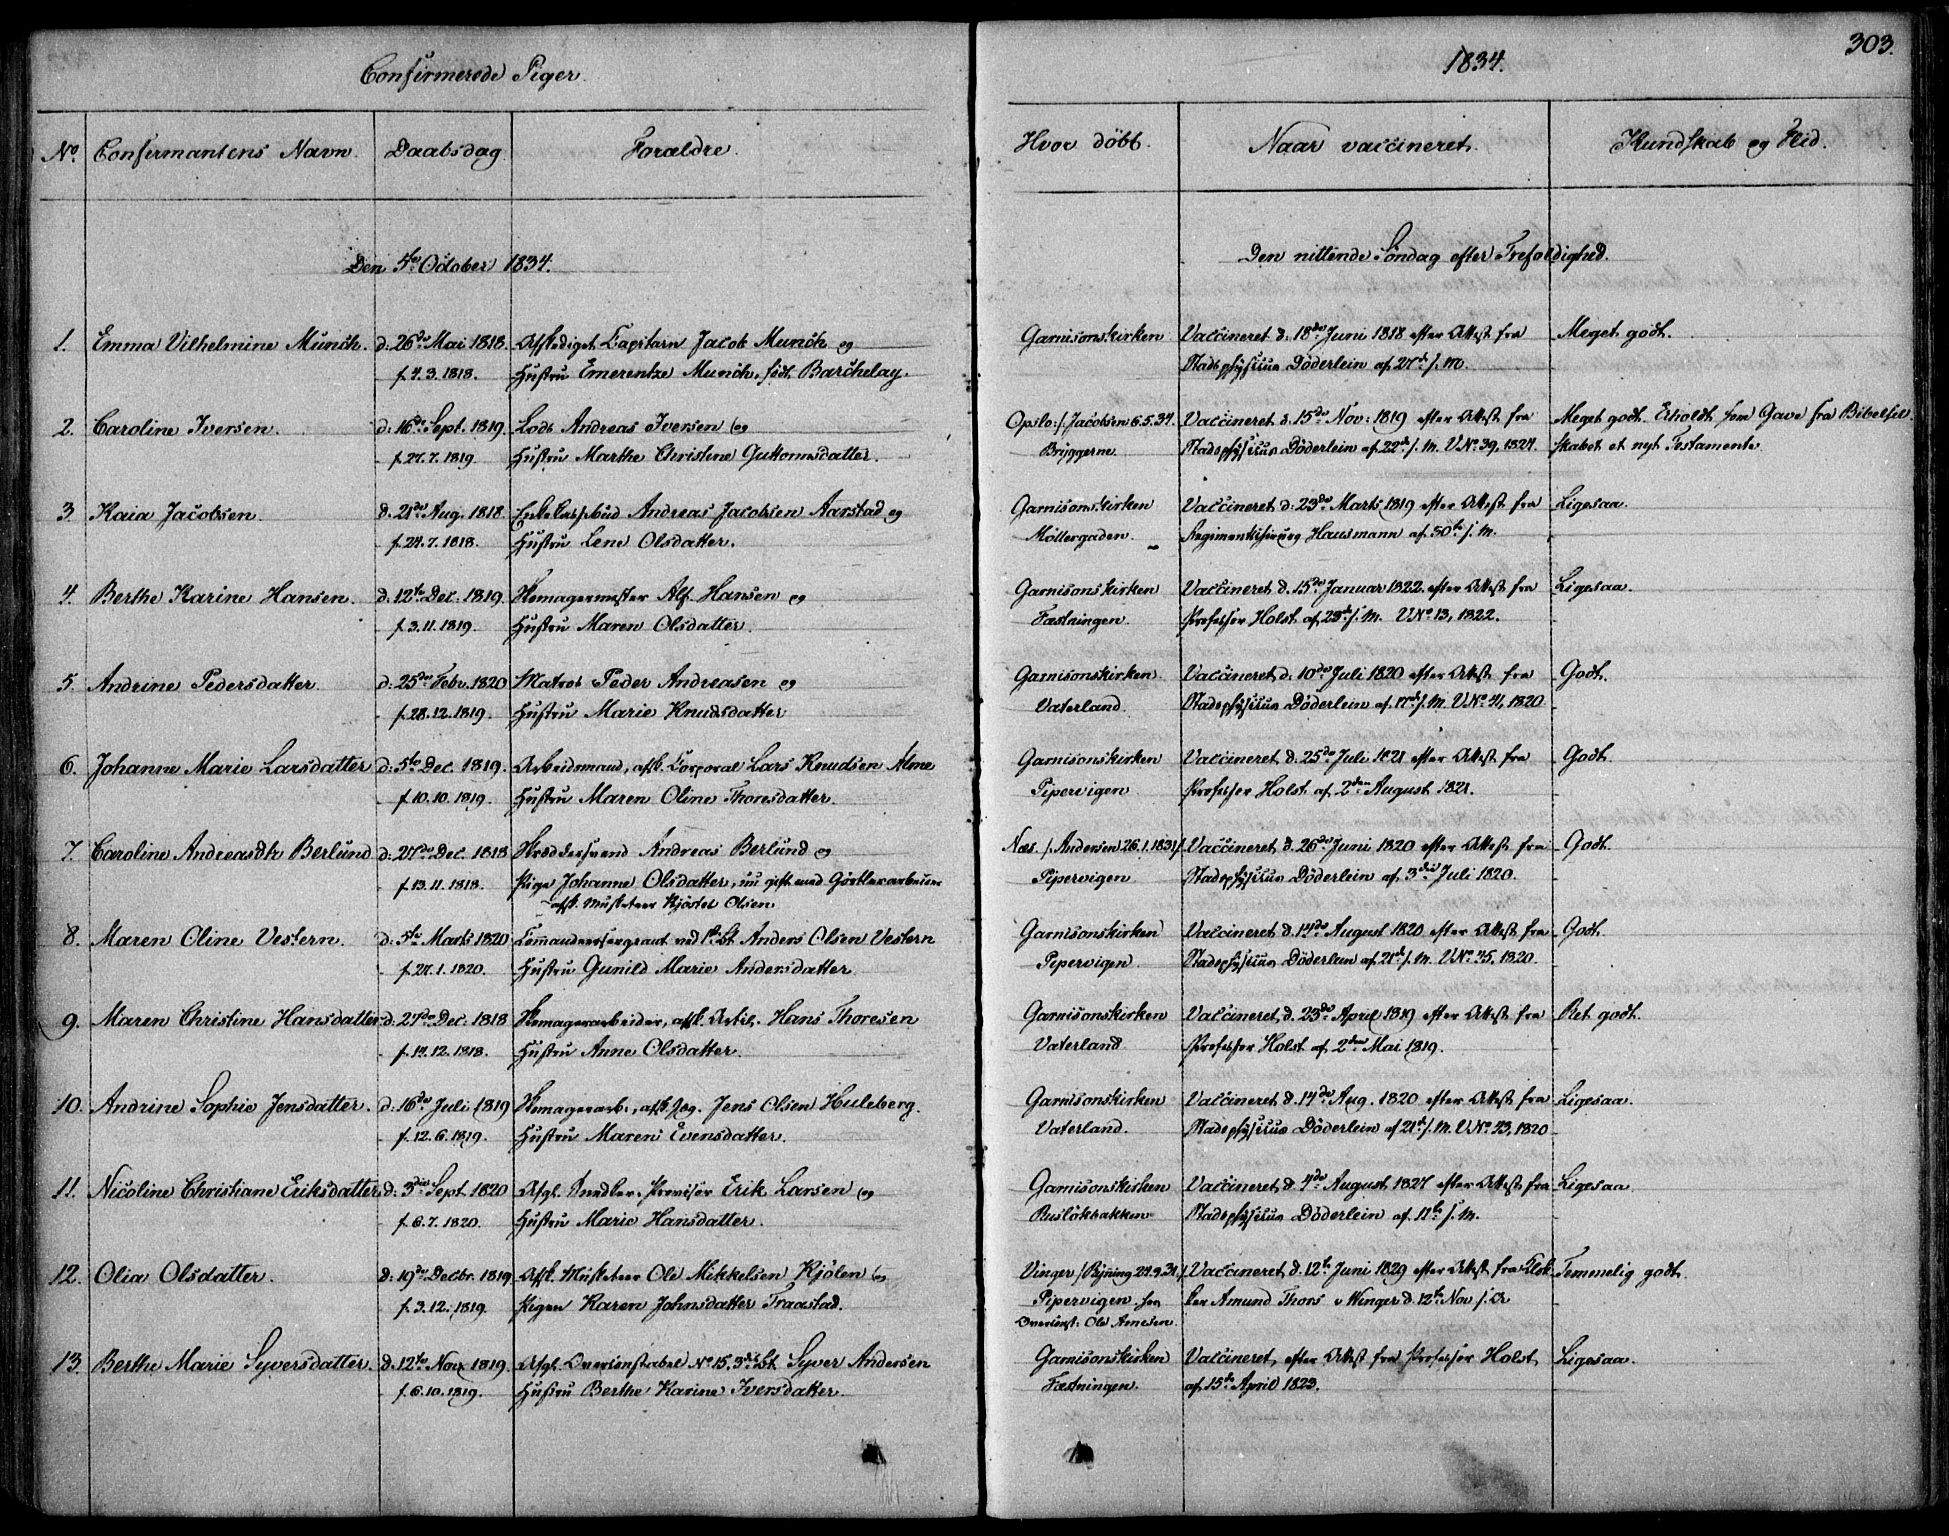 303.
Confirmerede Piger.
1834.
No. Confirmantens Navn. Daabsdag. Forældre. Hvor döbt. Naar vaccineret. Kundskab og Flid.
Den 5te October 1834. Den nittende Söndag efter Trefoldighed.
1. Emma Vilhelmine Munch. d. 26de Mai 1818. Afskediget Capitain Jacob Munch og Garnisonskirken Vaccineret d. 18de Juni 1818 efter Attest fra Meget godt.
f. 4. 3. 1818. Hustru Emerentze Munch, födt Barchelay. Stadsphysicus Döderlein af 27de s. M.
2. Caroline Iversen. d. 16de Sept. 1819. Lods Andreas Iversen og Opslo :/: Jacobsen 6.5.34. Vaccineret d. 15de Nov: 1819 efter Attest fra Meget godt. Erholdt som Gave fra Bibelsel-
f. 27. 7. 1819. Hustru Marthe Christine Guttormsdatter. Bryggerne Stadsphysicus Döderlein af 22de s. M. V No. 39, 1824. skabet et nyt Testamente
3. Kaia Jacobsen. d. 21de Aug. 1818. Andreas Jacobsen Aarstad og Garnisonskirken Vaccineret d. 23de Marts 1819 efter Attest fra Ligesaa.
f. 24. 7. 1818. Hustru Lene Olsdatter. Möllergaden. Regimentschirurg Hausmann af 30te s. M.
4. Berthe Karine Hansen. d. 12te Dec. 1819. Skomagermester Alf Hansen og Garnisonskirken Vaccineret d. 15de Januar 1822 efter Attest fra Ligesaa.
f. 3. 11. 1819. Hustru Maren Olsdatter. Fæstningen. Professor Holst af 23de s. M. V No. 13, 1822.
5. Andrine Pedersdatter. d. 25de Febr. 1820 Matros Peder Andreasen og Garnisonskirken Vaccineret d. 10de Juli 1820 efter Attest fra Godt.
f. 28. 12. 1819. Hustru Marie Knudsdatter Vaterland. Stadsphysicus Döderlein af 17de s. M. V No. 41, 1820
6. Johanne Marie Larsdatter d. 5te Dec. 1819. Arbeidsmand, afsk. Corporal Lars Knudsen Alme Garnisonskirken Vaccineret d. 25de Juli 1821 efter Attest fra Godt.
f. 10. 10. 1819. Hustru Maren Oline Thoresdatter. Pipervigen. Professor Holst af 2den August 1821.
7. Caroline Andreasdtr Berlund d. 27de Dec. 1818 Skræddersvend Andreas Berlund og Næs /: Andersen 26.1.1831 :/ Vaccineret d. 26de Juni 1820 efter Attest fra Godt.
f. 13. 11. 1818. Pige Johanne Olsdatter, nu gift med Görtlerarbeider Pipervigen Stadsphysicus Döderlein af 3die Juli 1820.
afsk. Musketeer Kjöstel Olsen
8. Maren Oline Vestern. d. 5te Marts 1820 Commandeersergeant ved 1ste Anders Olsen Vestern Garnisonskirken Vaccineret d. 14de August 1820 efter Attest fra Godt.
f. 27. 1. 1820. Hustru Gunild Marie Andersdatter Pipervigen. Stadsphysicus Döderlein af 21de s. M. V No. 45, 1820
9. Maren Christine Hansdatter d. 27de Dec. 1818 Skomagerarbeider, afsk. Artil. Hans Thoresen Garnisonskirken Vaccineret d. 23de April 1819 efter Attest fra Ret godt.
f. 14. 12. 1818. Hustru Anne Olsdatter. Vaterland Professor Holst af 2den Mai 1819.
10. Andrine Sophie Jensdatter. d. 16de Juli 1819 Skomagerarb., afsk. Jæg. Jens Olsen Huleberg. Garnisonskirken Vaccineret d. 14de Aug. 1820 efter Attest fra Ligesaa.
f. 12. 6. 1819. Hustru Maren Evensdatter. Vaterland. Stadsphysicus Döderlein af 21de s. M. V No. 43, 1820
11. Nicoline Christiane Eriksdatter d. 3die Sept. 1820 Erik Larsen og Garnisonskirken Vaccineret d. 4de August 1827 efter Attest fra Ligesaa.
f. 6. 7. 1820. Hustru Marie Hansdatter.Ruslökbakken Stadsphysicus Döderlein af 11te s. M.
12. Olia Olsdatter. d. 19de Decbr. 1819 Afsk. Musketeer Ole Mikkelsen Kjölen og Vinger /: Ryning 24.9.31. :/ Vaccineret d. 12te Juni 1829 efter Attest fra Klok- Temmelig godt.
f. 3. 12. 1819. Pigen Karen Johnsdatter Traastad. Pipervigen hos ker Amund Thors v Winger d. 12te Nov s. A
Overconst: Ole Arnesen.
13. Berthe Marie Syversdatter. d. 12te Nov. 1819. Afgl. Overconstabel No. 15, 3die Syver Andersen Garnisonskirken Vaccineret, efter Attest fra Professor Holst Ligesaa.
f. 6. 10. 1819. Hustru Berthe Karine Iversdatter. Fæstningen. af 15de April 1823.